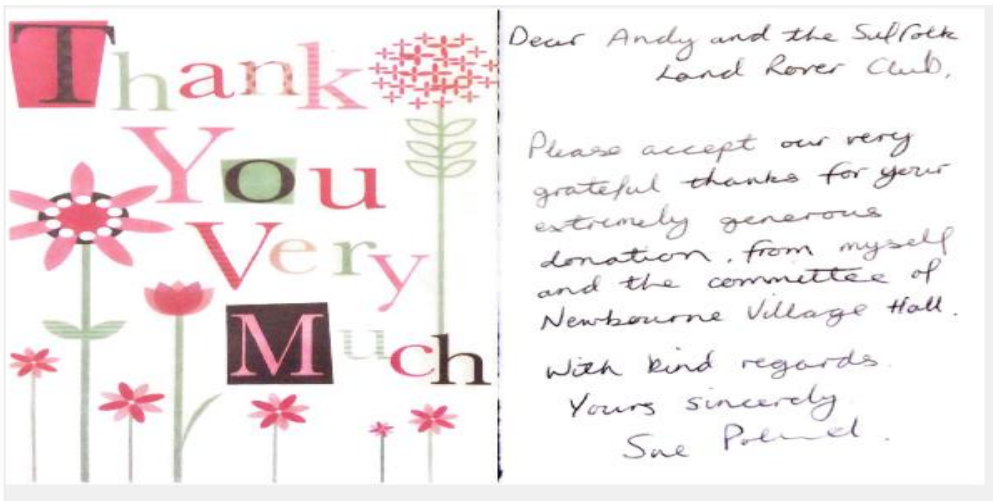 Thank
You
Very
Much
Dear Andy and the Suffolk
Land Rover Club,
Please accept our very
grateful thanks for your
extremely generous
donation, from myself
and the committee of
Newbourne Village Hall.
With kind regards.
Yours sincerely
Sue